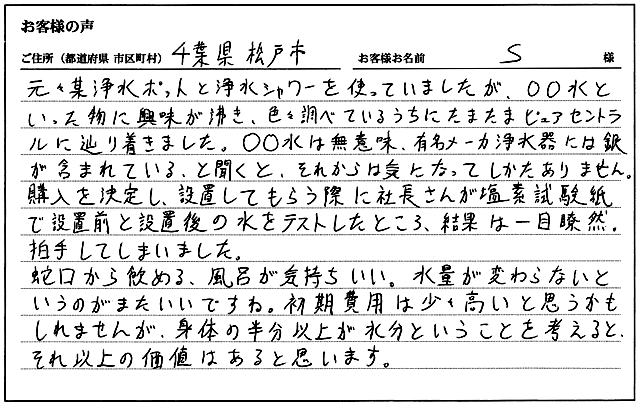 お客様の声
ご住所（都道府県 市区町村） 千葉県松戸市 お客様お名前 S 様
元々某浄水ポットと浄水シャワーを使っていましたが、〇〇水と
いった物に興味が沸き、色々調べているうちにたまたまピュアセントラ
ルに辿り着きました。〇〇水は無意味、有名メーカ浄水器には銀
が含まれている、と聞くと、それからは気になってしかたありません。
購入を決定し、設置してもらう際に社長さんが塩素試験紙
で設置前と設置後の水をテストしたところ、結果は一目瞭然。
拍手してしまいました。
蛇口から飲める、風呂が気持ちいい。水量が変わらないと
いうのがまたいいですね。初期費用は少々高いと思うかも
しれませんが、身体の半分以上が水分ということを考えると、
それ以上の価値はあると思います。